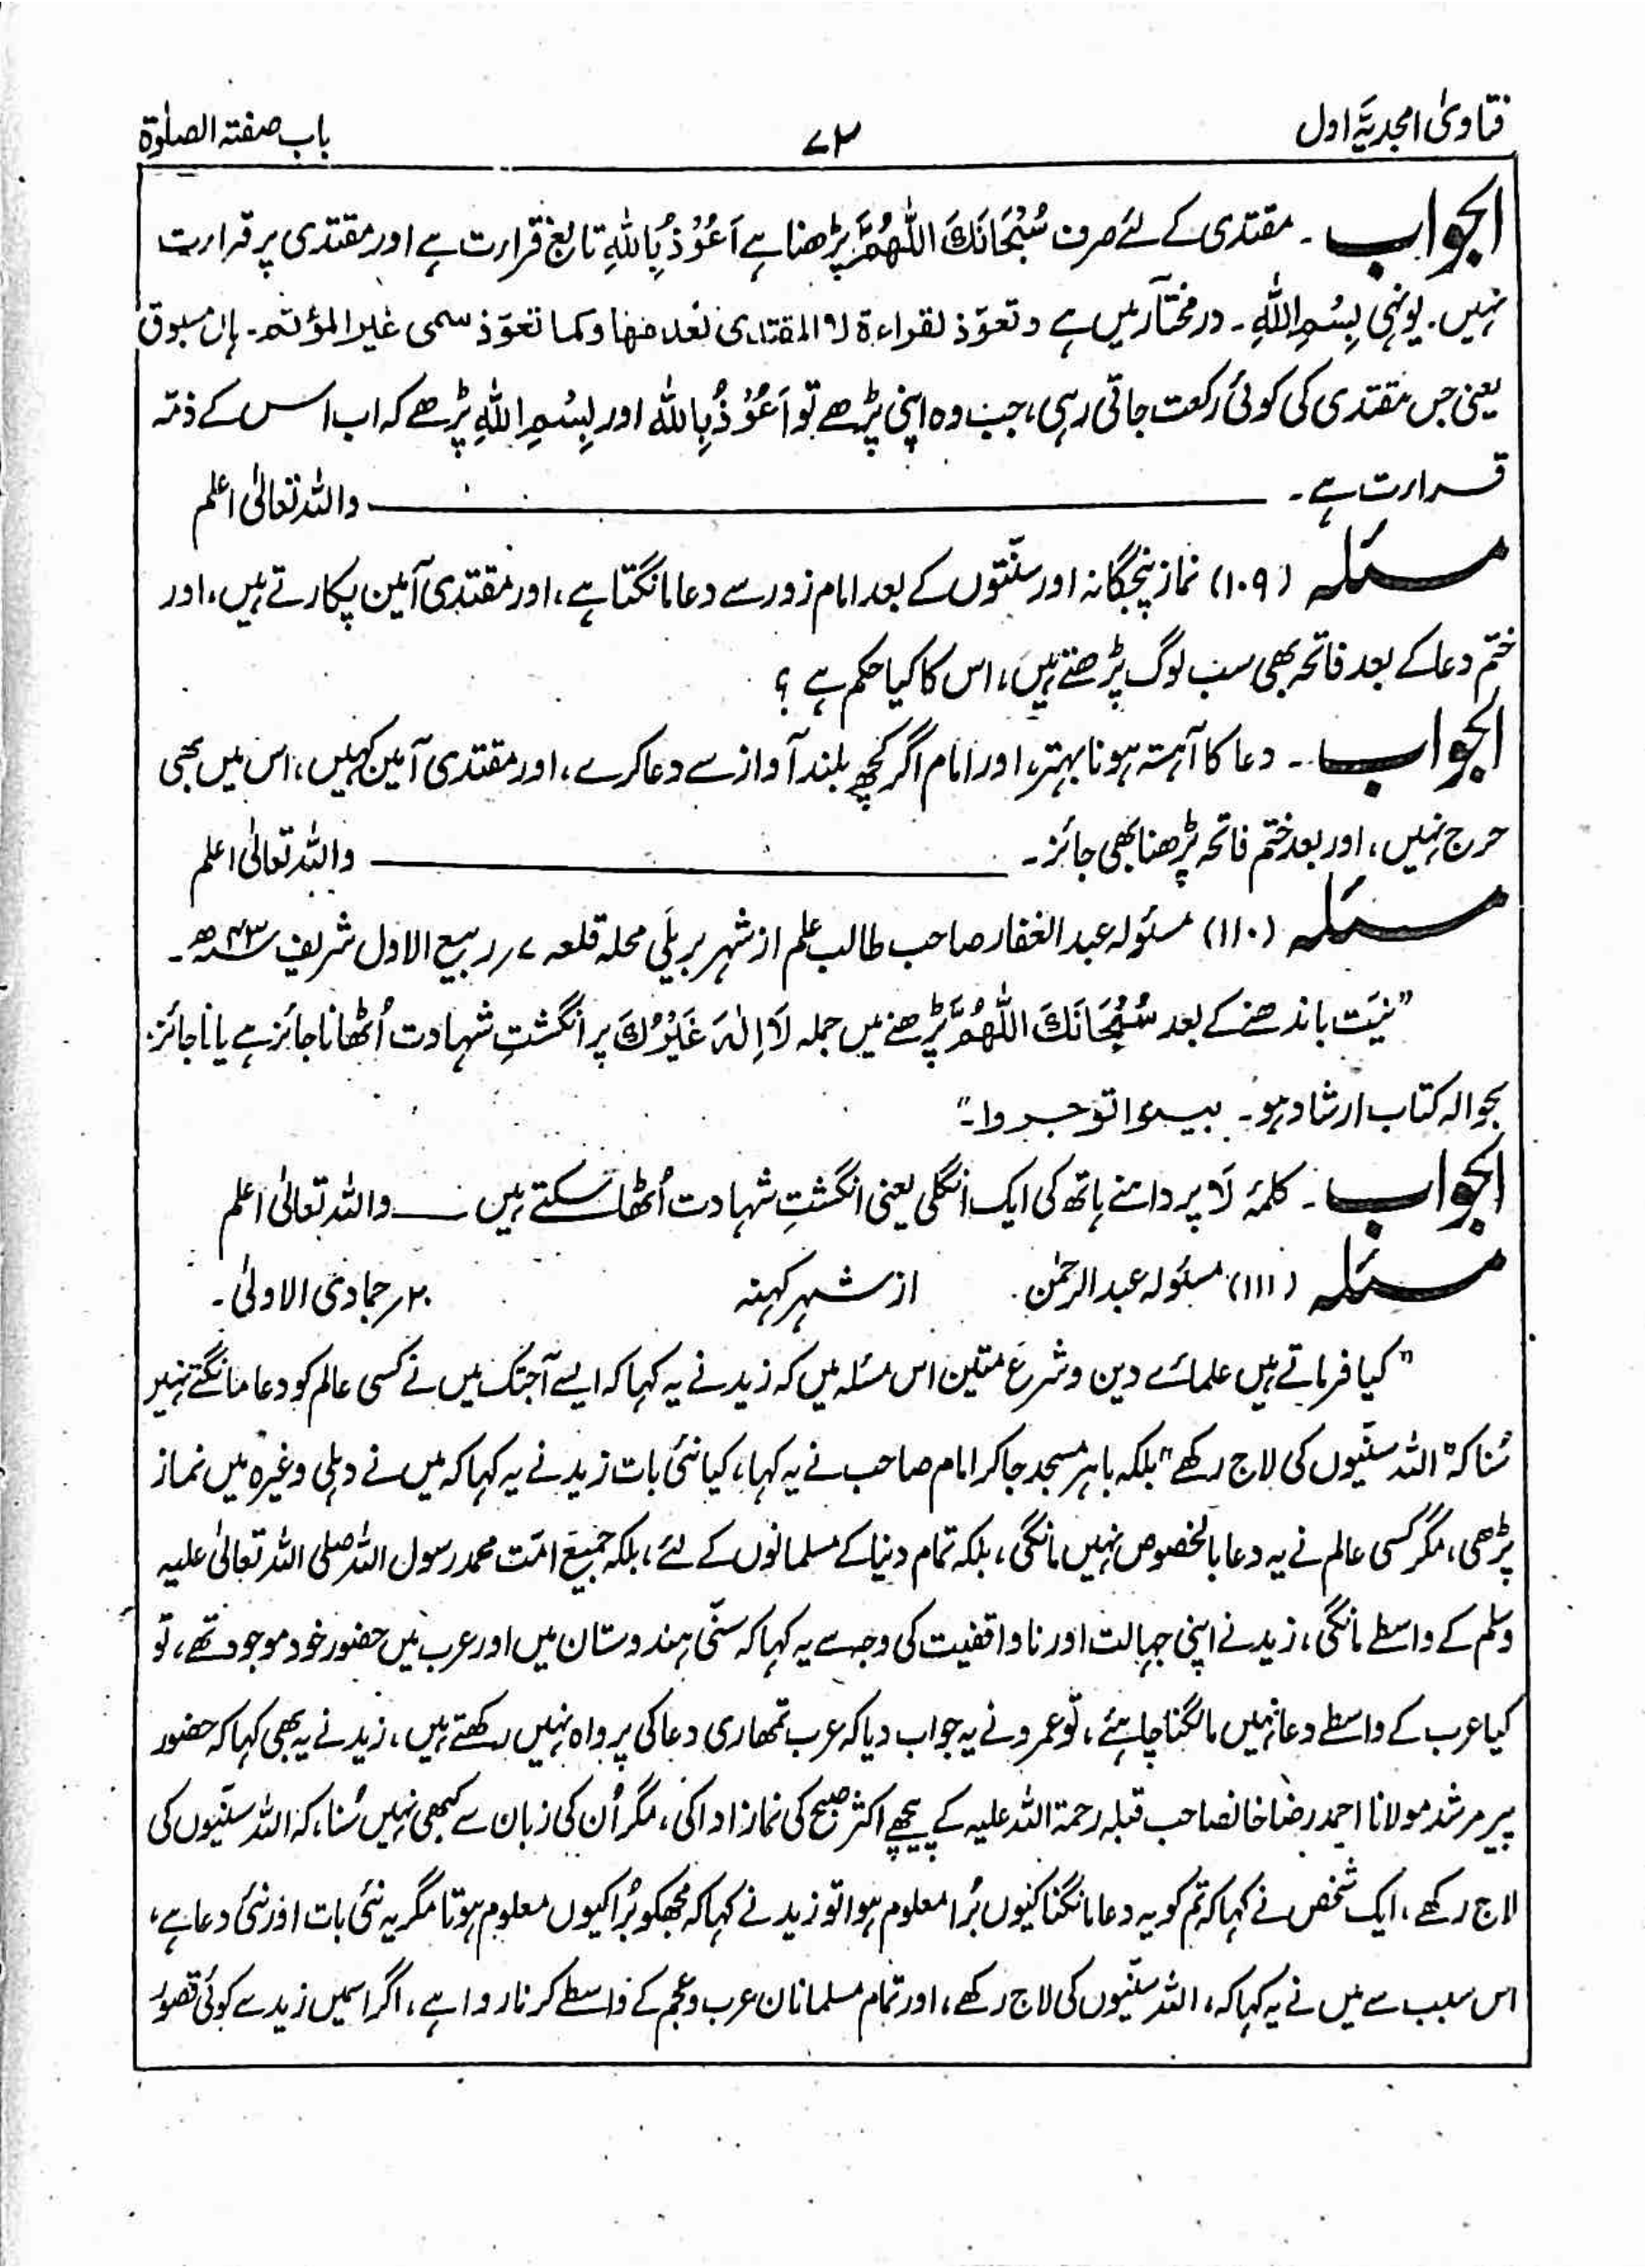 فتاویٰ امجدیہ اول
۷۴
باب صفتہ الصلوٰۃ
الجواب۔ مقتدی کے لئے صرف سُبْحَانَكَ اللّٰهُمَّ پڑھنا ہے اَعُوْذُ بِاللّٰهِ تابع قرارت ہے اور مقتدی پر قرارت
نہیں۔ یونہی بِسْمِ اللّٰهِ۔ درمختار میں ہے وتعوّذ لقراءۃ لا المقتدی لعدمھا وکما تعوّذ سمی غیر المؤتم۔ ہاں مسبوق
یعنی جس مقتدی کی کوئی رکعت جاتی رہی، جب وہ اپنی پڑھے تو اَعُوْذُ بِاللّٰهِ اور بِسْمِ اللّٰهِ پڑھے کہ اب اس کے ذمّہ
قرارت ہے۔ واللہ تعالیٰ اعلم
مسئلہ (۱۰۹) نماز پنجگانہ اور سنّتوں کے بعد امام زور سے دعا مانگتا ہے، اور مقتدی آمین پکارتے ہیں، اور
ختم دعا کے بعد فاتحہ بھی سب لوگ پڑھتے ہیں، اس کا کیا حکم ہے؟
الجواب۔ دعا کا آہستہ ہونا بہتر، اور امام اگر کچھ بلند آواز سے دعا کرے، اور مقتدی آمین کہیں، اس میں بھی
حرج نہیں، اور بعد ختم فاتحہ پڑھنا بھی جائز۔ واللہ تعالیٰ اعلم
مسئلہ (۱۱۰) مسئولہ عبد الغفار صاحب طالب علم از شہر بریلی محلہ قلعہ ۷؍ ربیع الاول شریف ۴۳ھ۔
"نیّت باندھنے کے بعد سُبْحَانَكَ اللّٰهُمَّ پڑھنے میں جملہ لَا اِلٰهَ غَيْرُكَ پر انگشتِ شہادت اُٹھانا جائز ہے یا ناجائز۔
بحوالہ کتاب ارشاد ہو۔ بینوا توجروا۔"
الجواب۔ کلمۂ لَا پر داہنے ہاتھ کی ایک انگلی یعنی انگشتِ شہادت اُٹھا سکتے ہیں واللہ تعالیٰ اعلم
مسئلہ (۱۱۱) مسئولہ عبد الرحمٰن۔ از شہر کہنہ ۲۰؍ جمادی الاولیٰ۔
"کیا فرماتے ہیں علمائے دین و شرع متین اس مسئلہ میں کہ زید نے یہ کہا کہ ایسے آجتک میں نے کسی عالم کو دعا مانگتے نہیں
سُنا کہ "اللہ سنّیوں کی لاج رکھے" بلکہ باہر مسجد جا کر امام صاحب نے یہ کہا، کیا نئی بات زید نے یہ کہا کہ میں نے دہلی وغیرہ میں نماز
پڑھی، مگر کسی عالم نے یہ دعا بالخصوص نہیں مانگی، بلکہ تمام دنیا کے مسلمانوں کے لئے، بلکہ جمیع امّت محمد رسول اللہ صلی اللہ تعالیٰ علیہ
وسلم کے واسطے مانگی، زید نے اپنی جہالت اور ناواقفیت کی وجہ سے یہ کہا کہ سنّی ہندوستان میں اور عرب میں حضور خود موجود تھے، تو
کیا عرب کے واسطے دعا نہیں مانگنا چاہئے، تو عمرو نے یہ جواب دیا کہ عرب تمہاری دعا کی پرواہ نہیں رکھتے ہیں، زید نے یہ بھی کہا کہ حضور
پیر مرشد مولانا احمد رضا خانصاحب قبلہ رحمۃ اللہ علیہ کے پیچھے اکثر صبح کی نماز ادا کی، مگر اُن کی زبان سے کبھی نہیں سُنا، کہ اللہ سنّیوں کی
لاج رکھے، ایک شخص نے کہا کہ تم کو یہ دعا مانگنا کیوں بُرا معلوم ہوا تو زید نے کہا کہ مجھکو بُرا کیوں معلوم ہوتا مگر یہ نئی بات اور نئی دعا ہے،
اس سبب سے میں نے یہ کہا کہ، اللہ سنّیوں کی لاج رکھے، اور تمام مسلمانان عرب و عجم کے واسطے کرنا روا ہے، اگر اسمیں زید سے کوئی قصور